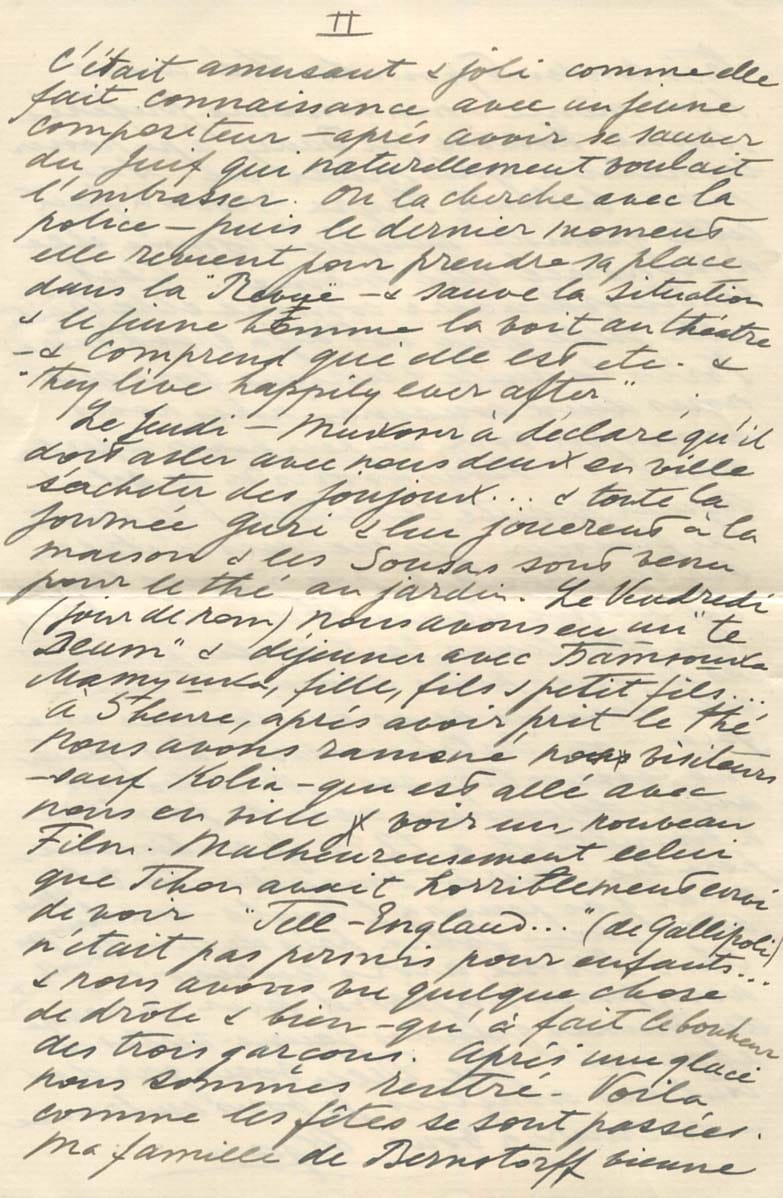 II
C'était amusant & joli comme elle
fait connaissance avec un jeune
compositeur – après avoir se sauver
du Juif qui naturellement voulait
l'embrasser. On la cherche avec la
police – puis le dernier moment
elle revient pour prendre sa place
dans la "Revuë – & sauve la situation
& le jeune homme la voit au théatre
– & comprend qui elle est etc. &
"they live happily ever after".
Le Jeudi – à déclaré qu'il
doit aller avec nous deux en ville
s'acheter des joujoux... & toute la
journée Guri & lui jouerent à la
maison & les Sousas sont venu
pour le thé au jardin. Le Vendredi
(jour de nom) nous avons eu un "te
Deum" & déjeuner avec
fille, fils & petit fils...
à 5 heure, après avoir prit le thé
nous avons ramené nos visiteurs
– sauf Kolia – qui est allé avec
nous en ville voir un nouveau
Film. Malheureusement celui
que Tihon avait horriblement envi
de voir "Tell – England..." (de Gallipoli)
n'était pas permis pour enfants...
& nous avons vu quelque chose
de drôle & bien – qu' à fait le bonheur
des trois garçons. Après une glace
nous sommes rentré – Voila
comme les fêtes se sont passées.
Ma famille de Bernstorff vienne